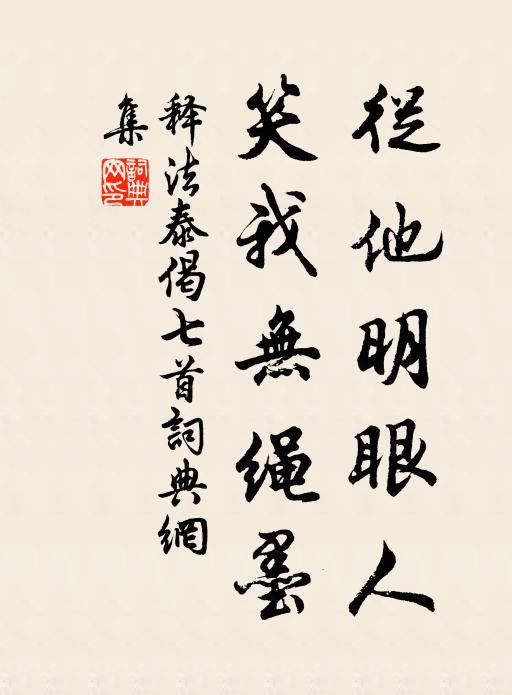 從他明眼人
笑我無绳墨
释法泰偈七首詞典網
集
詞典
网印